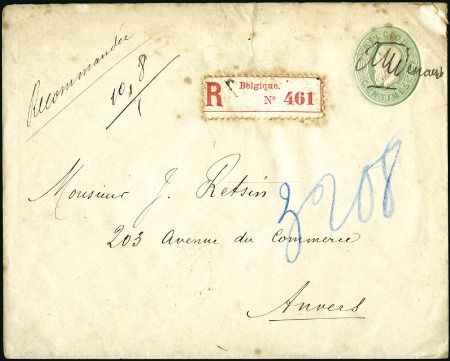 Recommandée
R Belgique.
Nº 461
Monsieur J. Retsin
203 Avenue du Commerce
Anvers
3208